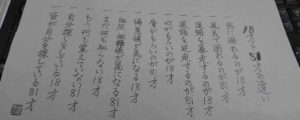 18才と81才の違い
恋に溺れるのが18才
風呂で溺れるのが81才
道路を暴走するのが18才
道路を逆走するのが81才
心がもろいのが18才
骨がもろいのが81才
偏差値が気になる18才
血圧・血糖値が気になる81才
まだ何も知らない18才
もう何も覚えていない81才
自分探しをしている18才
皆が自分を探している81才